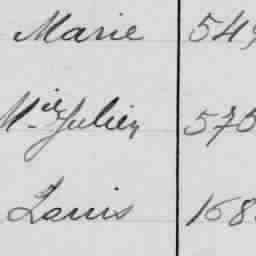 Marie 549
Mie Julien 575
Louis 168